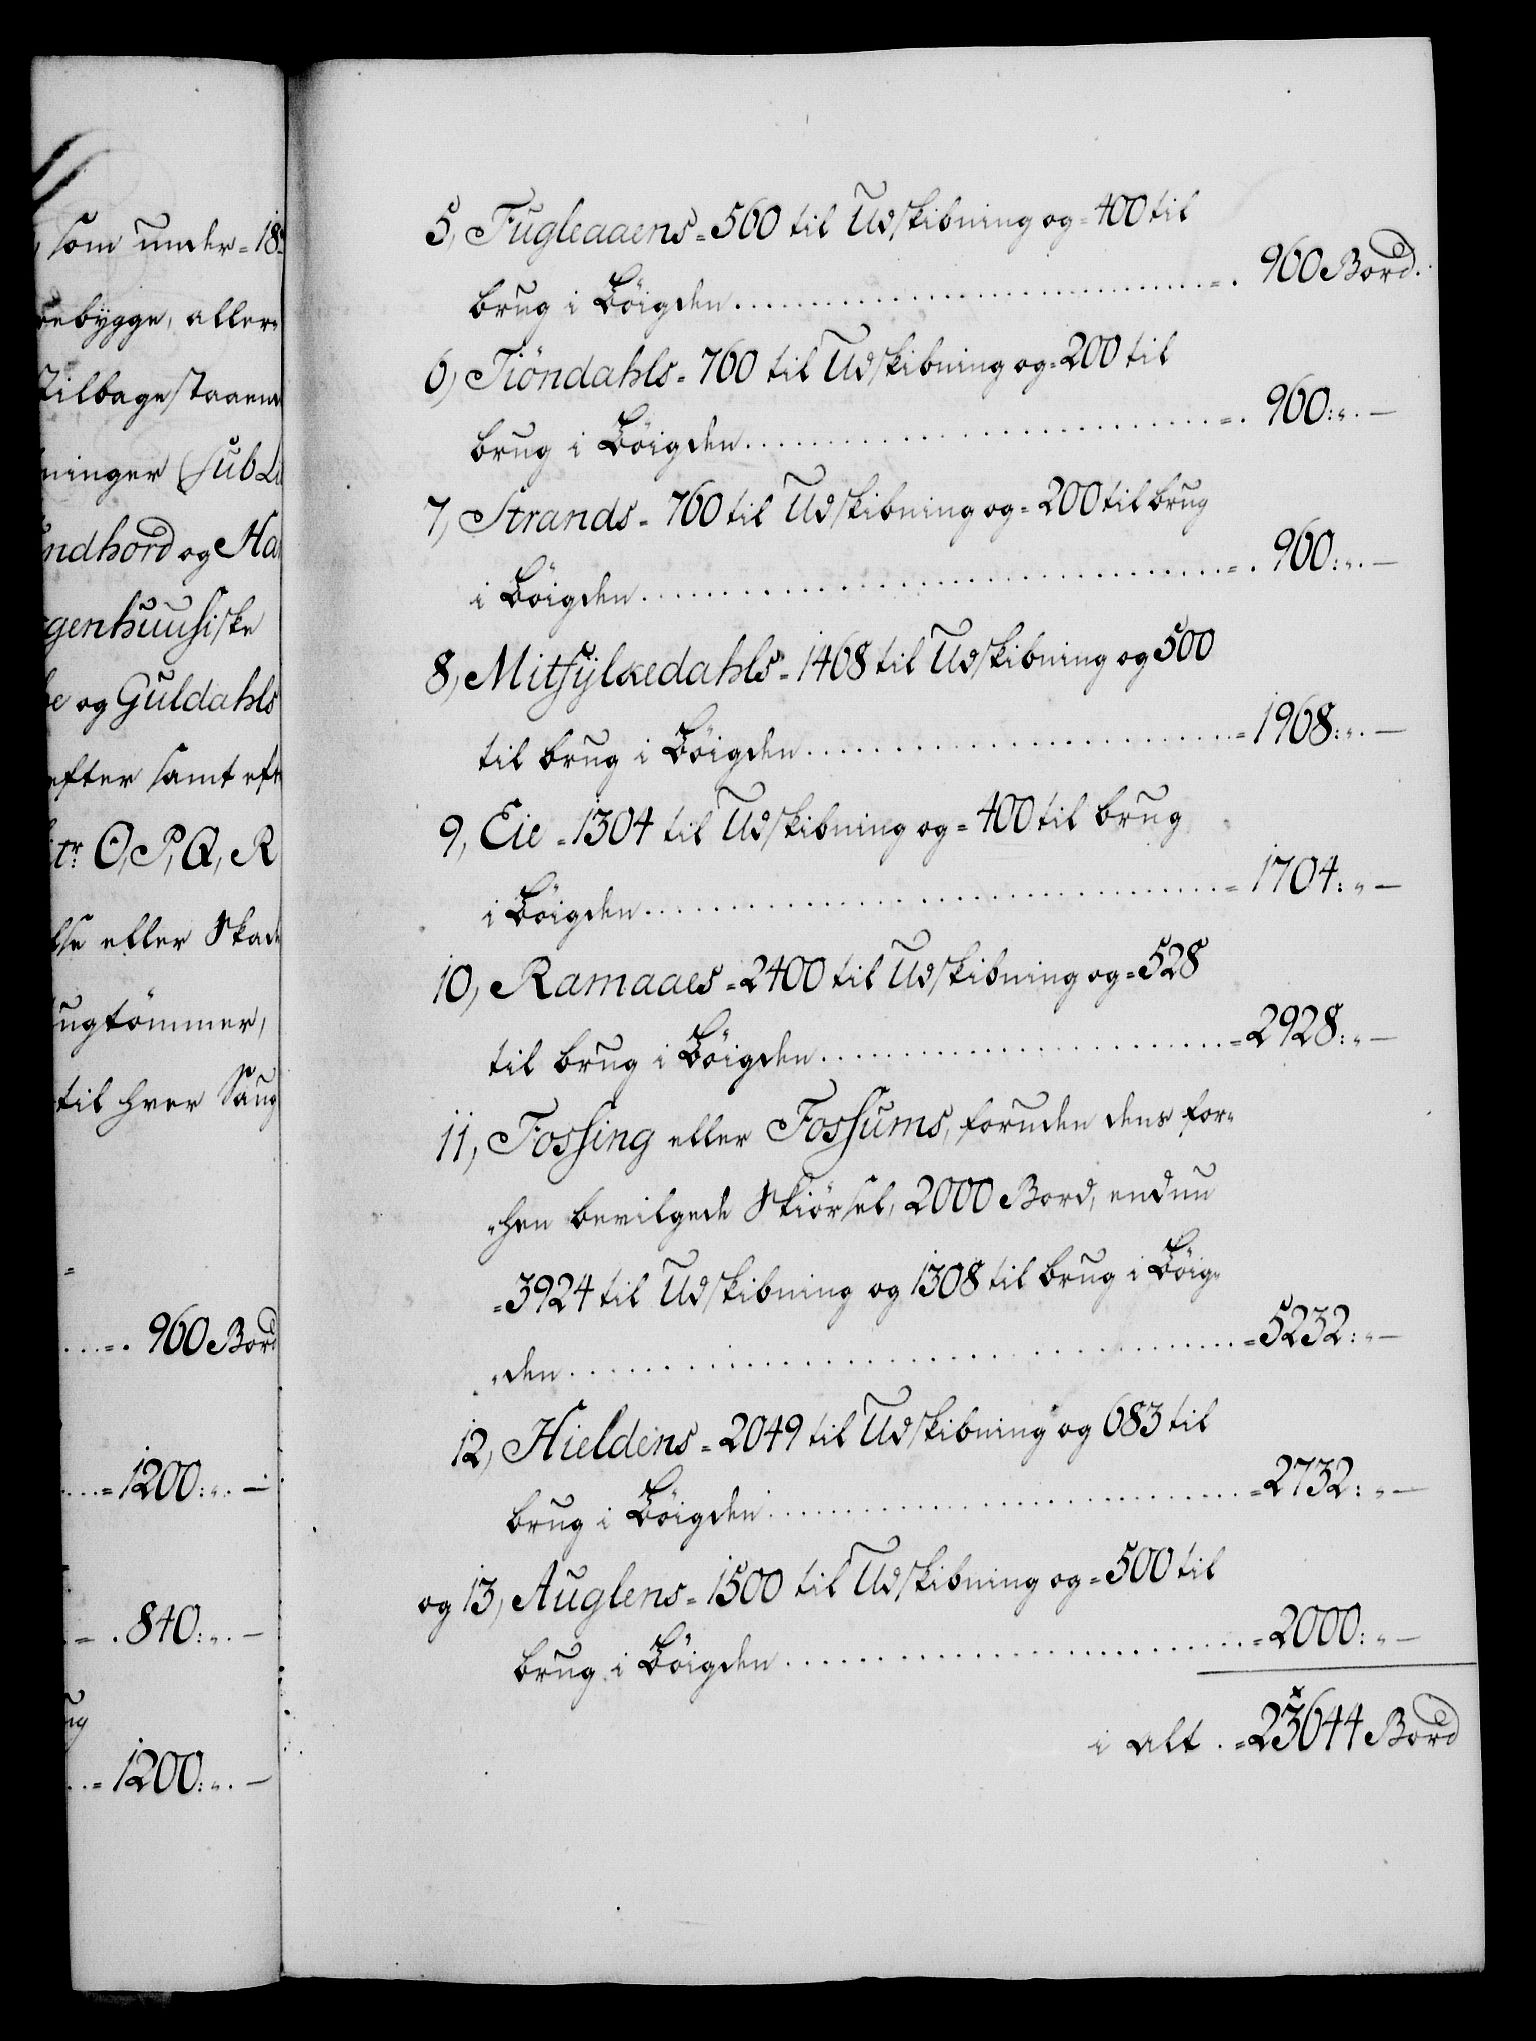 som under 18
bebygge, aller-
tilbagestaaend
ninger Sub Li
undhord og Ha
genhuusiske
e og Guldahls
efter samt eft
tr: O, P, Q, R
lse eller Skade
ugtömmer,
til hver Saug
=
...=. 960 Bord
...=1200:„.—
.=.840:„.—
ug
..=1200:„.—
5, Fugleaaens=560 til Udskibning og=400 til
brug i Böigden..........=. 960 Bord.
6, Tiöndahls=760 til Udskibning og=200 til
brug i Böigden..........=. 960:„.—
7, Strands=760 til Udskibning og=200 til brug
i Böigden..........=. 960:„.—
8, Mitsylkedahls=1468 til Udskibning og 500
til brug i Böigden..........=1968:„.—
9, Eie=1304 til Udskibning og=400 til brug
i Böigden..........=1704:„—
10, Ramaaes=2400 til Udskibning og=528
til brug i Böigden..........=2928:„—
11, Fossing eller Fossums, foruden dens for-
„hen bevilgede Skiörsel, 2000 Bord, endnu
=3924 til Udskibning og 1308 til brug i Böig-
„den..........=5232:„—
12, Hieldens=2049 til Udskibning og 683 til
brug i Böigden..........=2732:„—
og 13, Auglens=1500 til Udskibning og=500 til
brug i Böigden..........=2000:„—
i alt .=23644 Bord